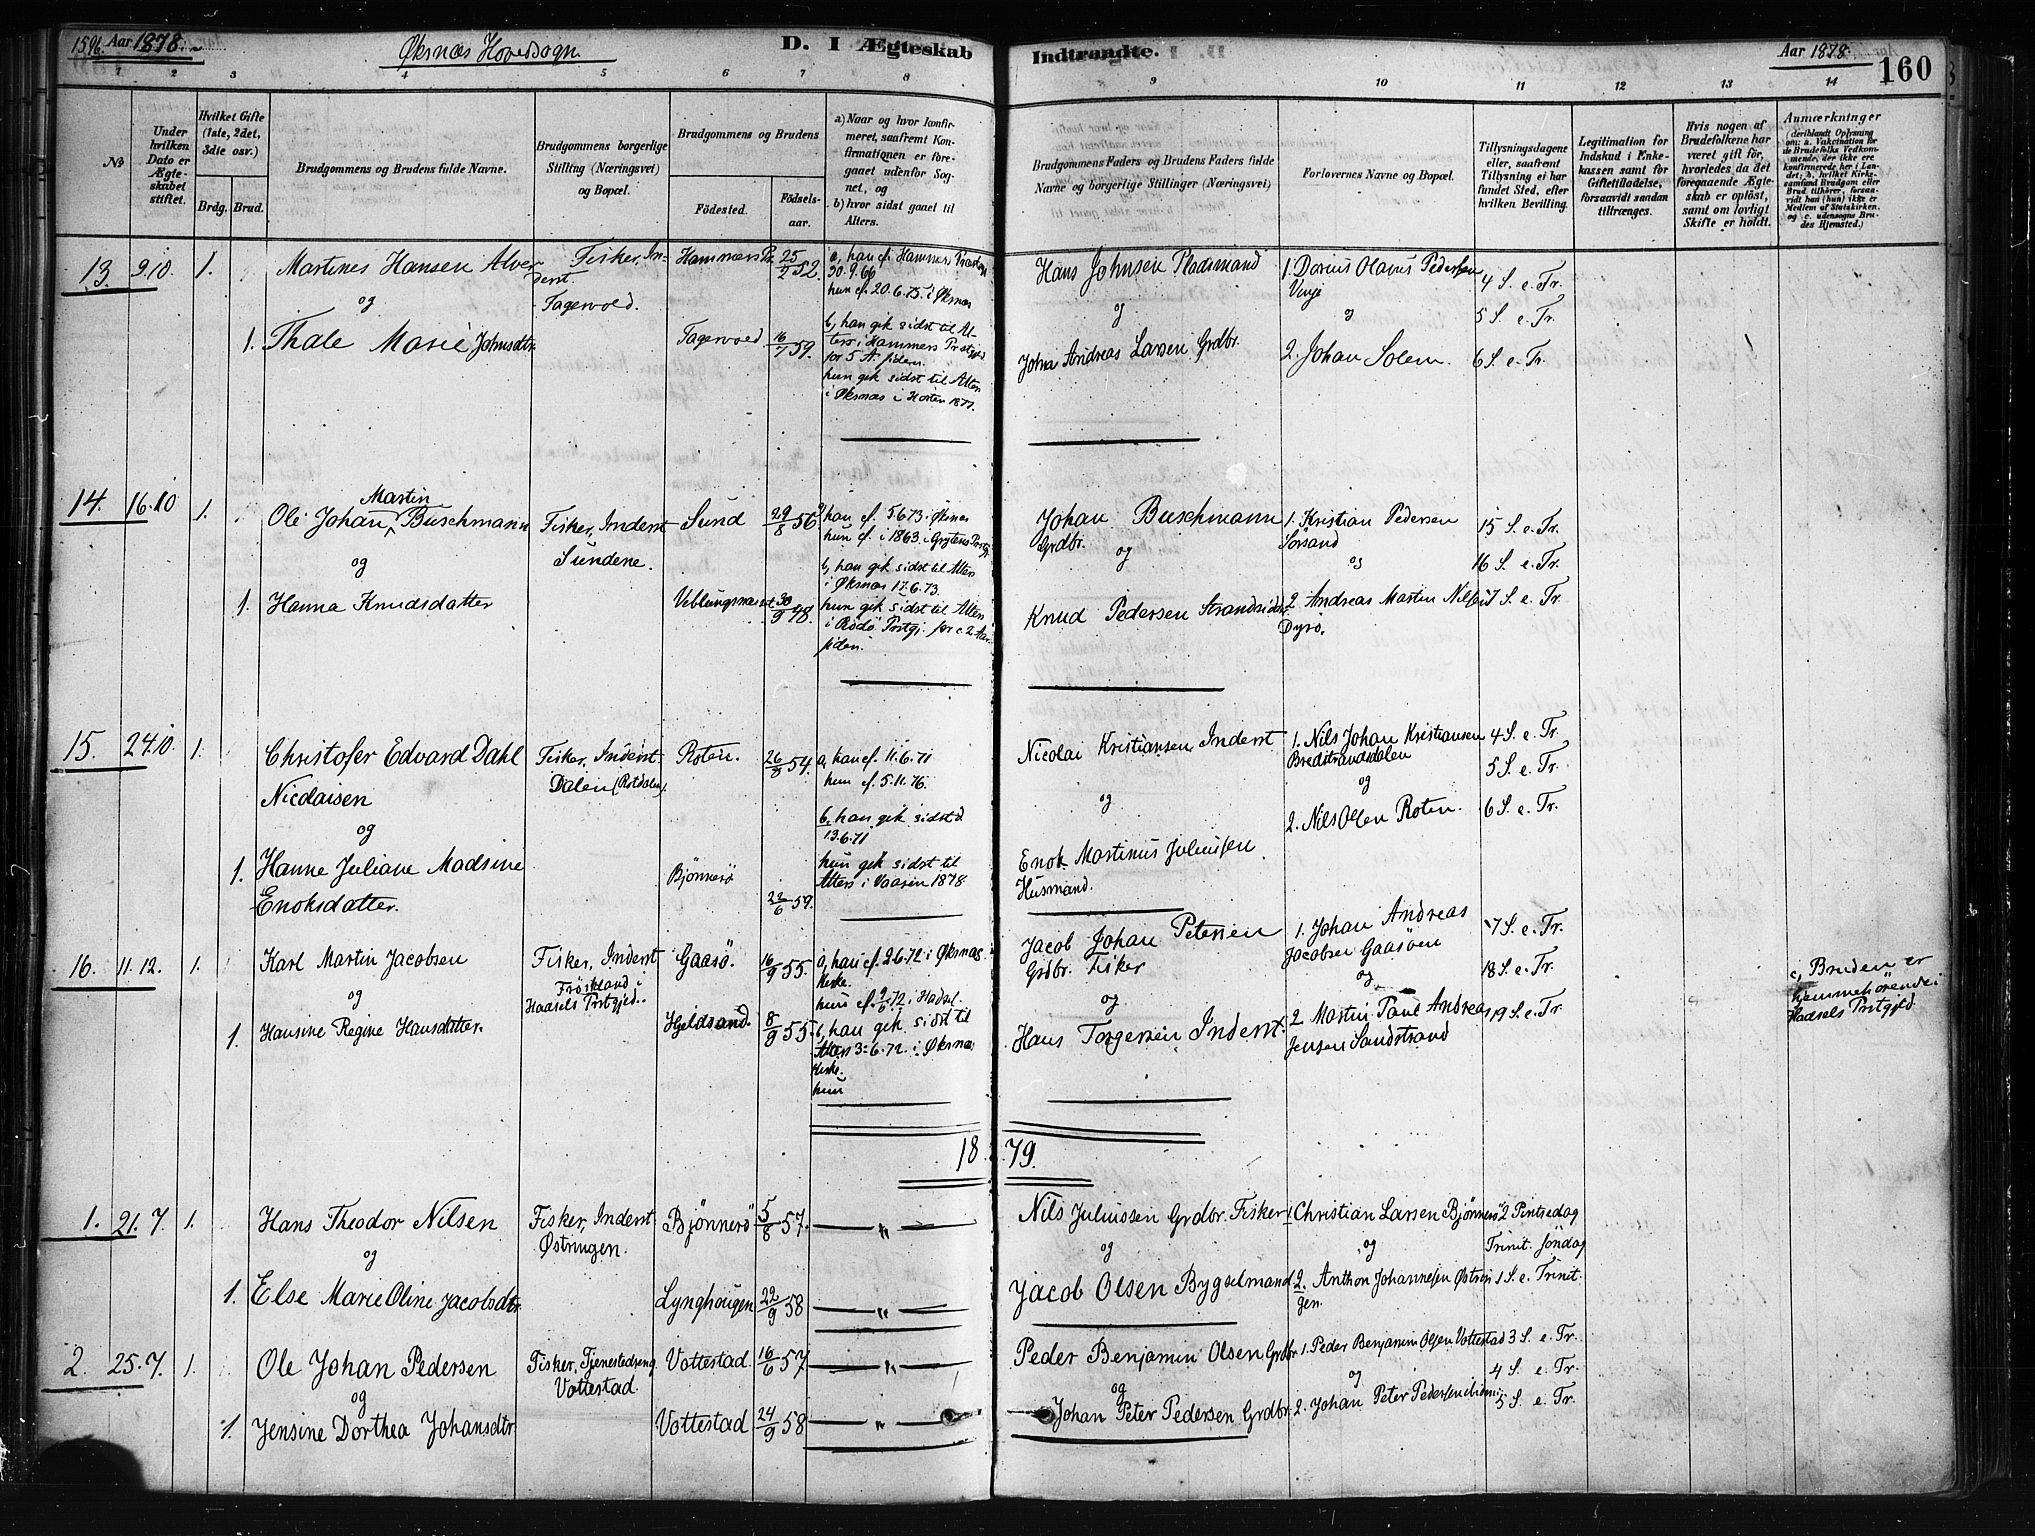 159b. Aar 1878.
Øksnæs Hovedsogn
D. I Ægteskab
Indtraadte.
Aar 1878.
160
1 2 3 4 5 6 7 8 9 10 11 12 13 14
No
Under hvilken Dato er Ægteskabet stiftet.
Hvilket Gifte (1ste, 2det, 3die osv.)
Brdg. Brud.
Brudgommens og Brudens fulde Navne.
Brudgommens borgerlige Stilling (Næringsvei) og Bopæl.
Brudgommens og Brudens
Födested.
Födselsaar.
a) Naar og hvor konfirmeret, saafremt Konfirmationen er foregaaet udenfor Sognet, og
b) hvor sidst gaaet til Alters.
Brudgommens Faders og Brudens Faders fulde Navne og borgerlige Stillinger (Næringsvei)
Forlovernes Navne og Bopæl.
Tillysningsdagene eller, saafremt Tillysning ei har fundet Sted, efter hvilken Bevilling.
Legitimation for Indskud i Enkekassen samt for Giftetilladelse, forsaavidt saadan tiltrænges.
Hvis nogen af Brudefolkene har været gift før, hvorledes da det foregaaende Ægteskab er opløst, samt om lovligt Skifte er holdt.
Anmærkninger
(deriblandt Oplysning om: a. Vakcination for de Brudefolks Vedkommende, der ikke ere konfirmerede her i Landet; b. hvilket Kirkesamfund Brudgom eller Brud tilhører, forsaavidt han (hun) ikke er Medlem af Statskirken, og c. udensogns Brudes Hjemsted.)
13. 9.10. 1. Martines Hansen Alver
Fisker, Inderst.
Fagervold.
Hammers Pr. 25/2 52.
a, han cf. Hammers Præstegj
30.9.66
hun cf. 20.6.75 i Øksnæs
og
1. Thale Marie Johnsdtr.
Fagervold 16/7 59.
b, han gik sidst til Alters i Hammers Prstgjd for 5 A. siden.
hun gik sidst til Alters
i Øksnæs i Høsten 1877.
Hans Johnsen Pladsmand
og
John Andreas Larsen Grdbr.
1. Dorius Olaus Pedersen
Vinje
og
2. Johan Solem
4 S. e. Tr.
5 S. e. Tr.
6 S. e. Tr.
14. 16.10 1. Ole Johan Martin Buschmann
og
1. Hanna Knudsdatter
Fisker, Inderst
Sundene.
Sund 29/8 56
Veblungsnæset 30/9 48.
a, han cf. 5673 i Øksnæs
hun cf. i 1863. i Grytens Prstgj.
b, han gik sidst til Alters
i Øksnæs 17.6.73.
hun gik sidst til Alters
i Rödö Prstgj. for c. 2 Aar
siden.
Johan Buschmann
Grdbr.
og
Knud Pedersen Strandsidder
1. Kristian Pedersen
Sorsand
og
2. Andreas Martin Nilsen
Dyrø.
15 S. e. Tr.
16 S. e. Tr.
17 S. e. Tr
15. 24.10. 1. Christofer Edvard Dahl
Nicolaisen
og
1. Hanne Juliane Madsine
Enoksdatter.
Fisker, Inderst.
Dalen (Rotdalen).
Roten. 26/8 54.
Bjønnerö
22/6 59.
a, han cf. 11.6.71
hun cf. 5.11.76.
b, han gik sidst d.
13.6.71
hun gik sidst til
Alters i Vaaren 1878
Nicolai Kristiansen Inderst
og
Enok Martinus Juliussen
Husmand.
1. Nils Johan Kristiansen
Bredstrandsdalen
og
2. Nils Olsen Roten.
4 S. e. Tr.
5 S. e. Tr.
6 S. e. Tr.
16. 11.12. 1. Karl Martin Jacobsen
og
1. Hansine Regine Hansdatter.
Fisker, Inderst
Frøskland i
Haasels Prstgjed.
Gaasø. 16/9 55.
Hjeldsand. 8/9 55.
a, han cf. 2.6.72 i Øksnæs
Kirke.
hun cf. 9/6 72 i Hadsel.
b, han gik sidst til
Alters 3-6.72. i Øksnæs
Kirke.
hun
Jacob Johan Petersen
Grdbr. Fisker
og
Hans Torgersen Inderst.
1. Johan Andreas
Jacobsen Gaasøen
og
2. Martin Paul Andreas
Jensen Sandstrand
17 S. e. Tr.
18 S. e. Tr
19 S. e. Tr
c, Bruden er
hjemmehörende i
Hadsels Prstgjeld
18 79.
1. 21.7. 1. Hans Theodor Nilsen
og
1. Else Marie Oline Jacobsdtr.
Fisker, Inderst
Østringen.
Bjønnerö 5/8 57.
Lynghougen 22/9 58
— „ —
— „ —
Nils Juliussen Grdbr. Fisker
og
Jacob Olsen Bygselmand
1. Christian Larsen Bjønnerö
og
2. Anthon Johannesen Østringen.
2 Pintsedag
Trinit. Söndag
1 S. e. Trinit.
2. 25.7. 1. Ole Johan Pedersen
og
1. Jensine Dorthea Johansdtr.
Fisker, Tjenestedreng
Vottestad.
Vottestad 16/6 57
Vottestad 24/9 58
— „ —
— „ —
Peder Benjamin Olsen Grdbr.
og
Johan Peter Pedersen Grdbr.
1. Peder Benjamin Olsen Vottestad
og
2. Johan Peter Pedersen ibidem
3 S. e. Tr.
4 S. e. Tr.
5 S. e. Tr.